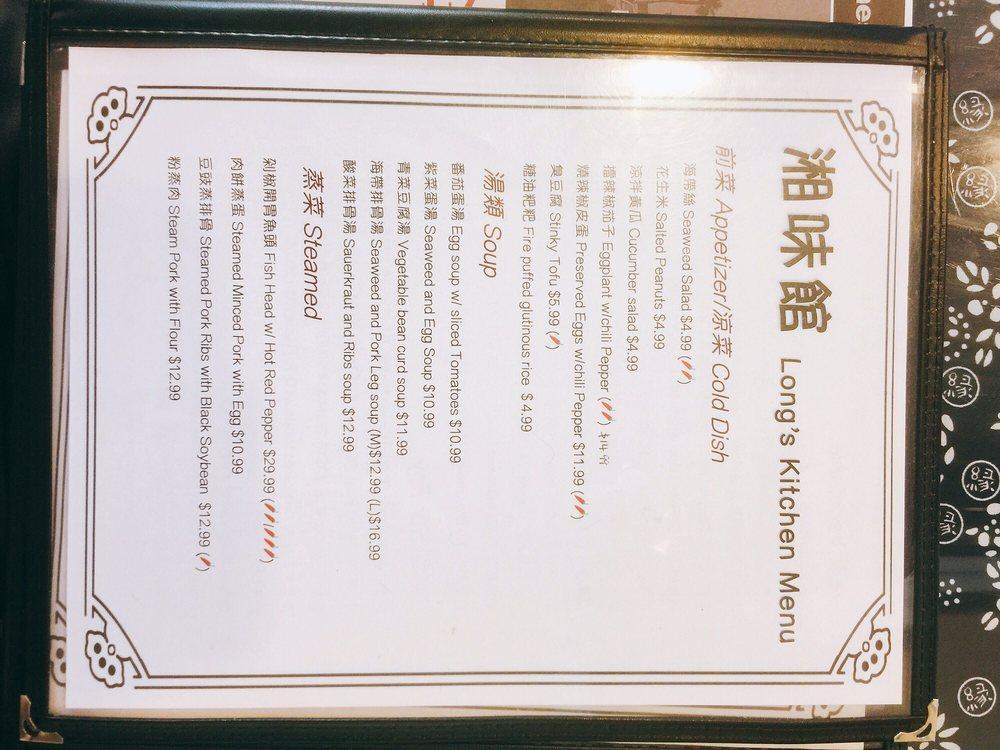 湘味館 Long's Kitchen Menu
前菜 Appetizer/涼菜 Cold Dish
海帶絲 Seaweed Salad $4.99
花生米 Salted Peanuts $4.99
涼拌黃瓜 Cucumber salad $4.99
擂辣椒茄子 Eggplant w/chili Pepper $14.99
燒辣椒皮蛋 Preserved Eggs w/chili Pepper $11.99
臭豆腐 Stinky Tofu $5.99
糖油粑粑 Fire puffed glutinous rice $ 4.99
湯類 Soup
番茄蛋湯 Egg soup w/ sliced Tomatoes $10.99
紫菜蛋湯 Seaweed and Egg Soup $10.99
青菜豆腐湯 Vegetable bean curd soup $11.99
海帶排骨湯 Seaweed and Pork Leg soup (M)$12.99 (L)$16.99
酸菜排骨湯 Sauerkraut and Ribs soup $12.99
蒸菜 Steamed
剁椒開胃魚頭 Fish Head w/ Hot Red Pepper $29.99
肉餅蒸蛋 Steamed Minced Pork with Egg $10.99
豆豉蒸排骨 Steamed Pork Ribs with Black Soybean $12.99
粉蒸肉 Steam Pork with Flour $12.99